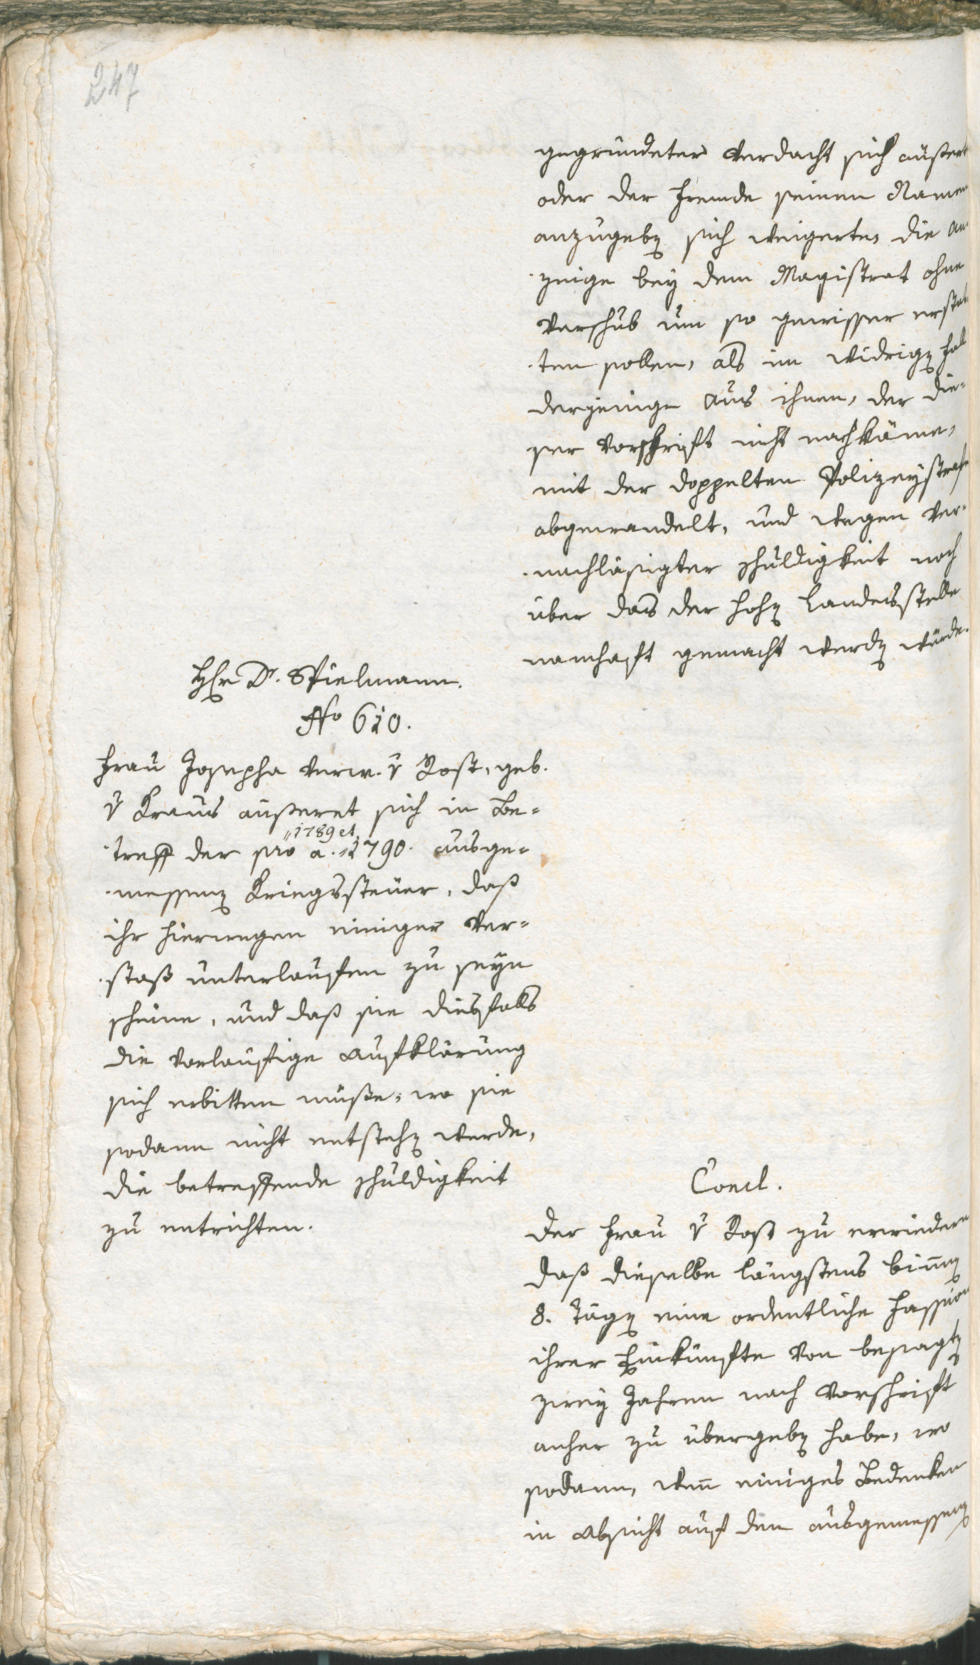 247
gegründeter Verdacht sich äußert
oder der Fremde seinen Namen
anzugeben sich weigerte, die An-
zeige bey dem Magistrat ohne
Verschub um so gewisser erstat
ten sollen, als im widrigen Fall
derjenige aus ihnen, der die-
ser Vorschrift nicht nachkäme,
mit der doppelten Polizeystrafe
abgewandelt, und wegen Ver-
nachläßigter Schuldigkeit noch
über das der hohen Landesstelle
namhaft gemacht werden würde.
Hr Dr. Spielmann.
No 610.
Frau Josepha verw. v Rost, geb.
v Kraus äußeret sich in Be-
treff der pro a. 1789 et 1790. ausge-
messenen Kriegssteuer, daß
ihr hierwegen einiger Ver-
stoß unterlaufen zu seyn
scheine, und daß sie diesfalls
die vorläufige Aufklärung
sich erbitten müße, wo sie
sodann nicht entstehen werde,
die betreffende Schuldigkeit
zu entrichten.
Concl.
Der Frau v Rost zu erwiedern
daß dieselbe längstens binnen
8. Tägen eine ordentliche Fassion
ihrer Einkünfte von besagten
zwey Jahren nach Vorschrift
anher zu übergeben habe, wo
sodann, wenn einiges Bedenken
in Absicht auf den ausgemessenen